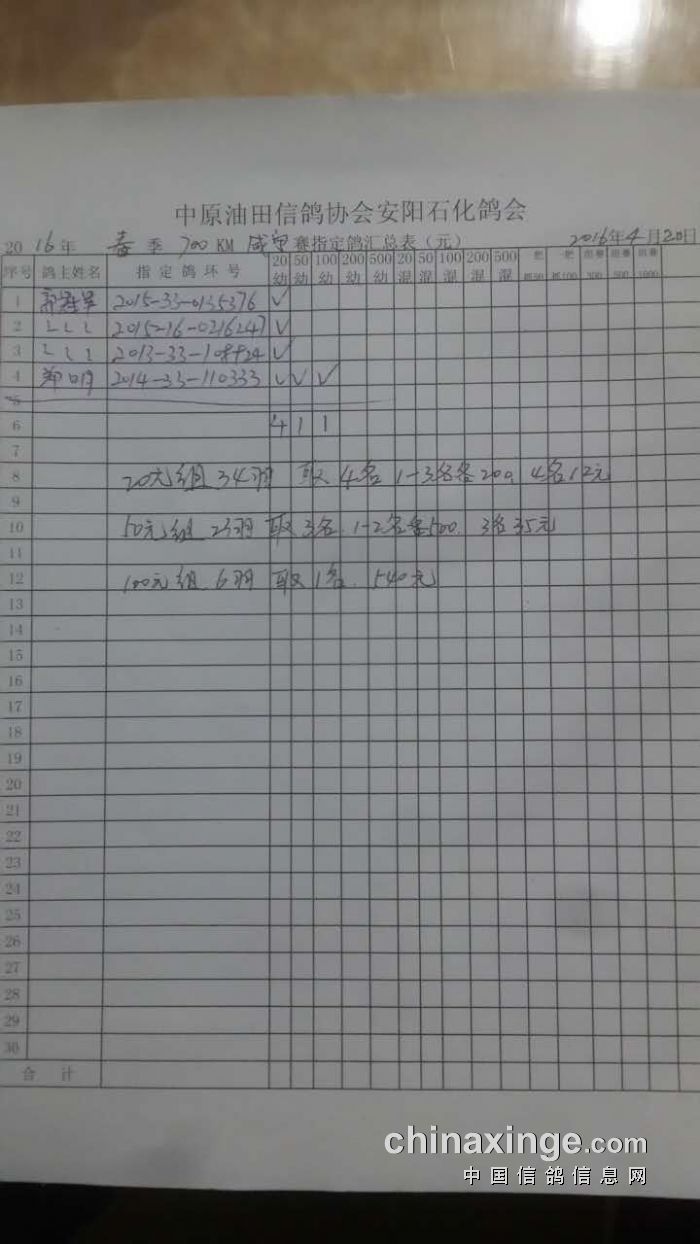 中原油田信鸽协会安阳石化鸽会
2016年 春季 700KM 咸宁赛指定鸽汇总表（元） 2016年4月20日
序号 鸽主姓名 指定鸽环号 20幼 50幼 100幼 200幼 500幼 20混 50混 100混 200混 500混
1 郭胜军 2015-33-0135376 ✓
2 2015-16-0216247 ✓
3 2013-33- ✓
4 郑明 2014-33-110333 ✓ ✓ ✓
5
6 4 1 1
7
8 20元组 34羽 取4名 1-3名各200 4名12元
9
10 50元组 23羽 取3名 1-2名各500. 3名35元
11
12 100元组 6羽 取1名. 540元
13
14
15
16
17
18
19
20
21
22
23
24
25
26
27
28
29
30
合计
chinaxinge.com
中国信鸽信息网